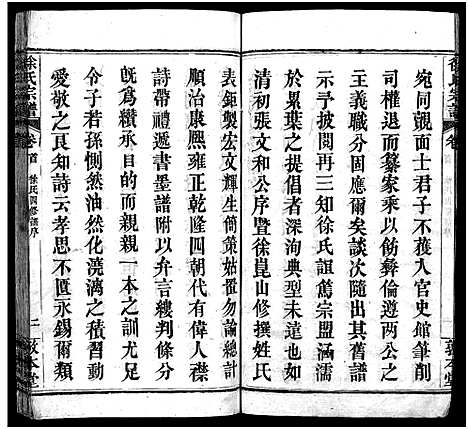 宛同覿面士君子不獲入官史館筆削
司權退而纂家乘以飭彝倫遵兩公之
主義職分固應爾矣談次出其舊譜
示予披閱再三知徐氏誼篤宗盟涵濡
於累葉之提倡者深洵典型未達也如
清初張文和公序暨徐崑山修撰姓氏
表鉅製宏文輝生簡策姑置勿論總計
順治康熙雍正乾隆四朝代有偉人襟
詩帶禮遞書墨譜附以弁言縷判條分
旣為纘承目的而親親一本之訓尤足
令子若孫惻然油然化澆漓之積習動
愛敬之良知詩云孝思不匱永錫爾類
徐氏宗譜
卷首
徐氏四修譜序
二
敦本堂